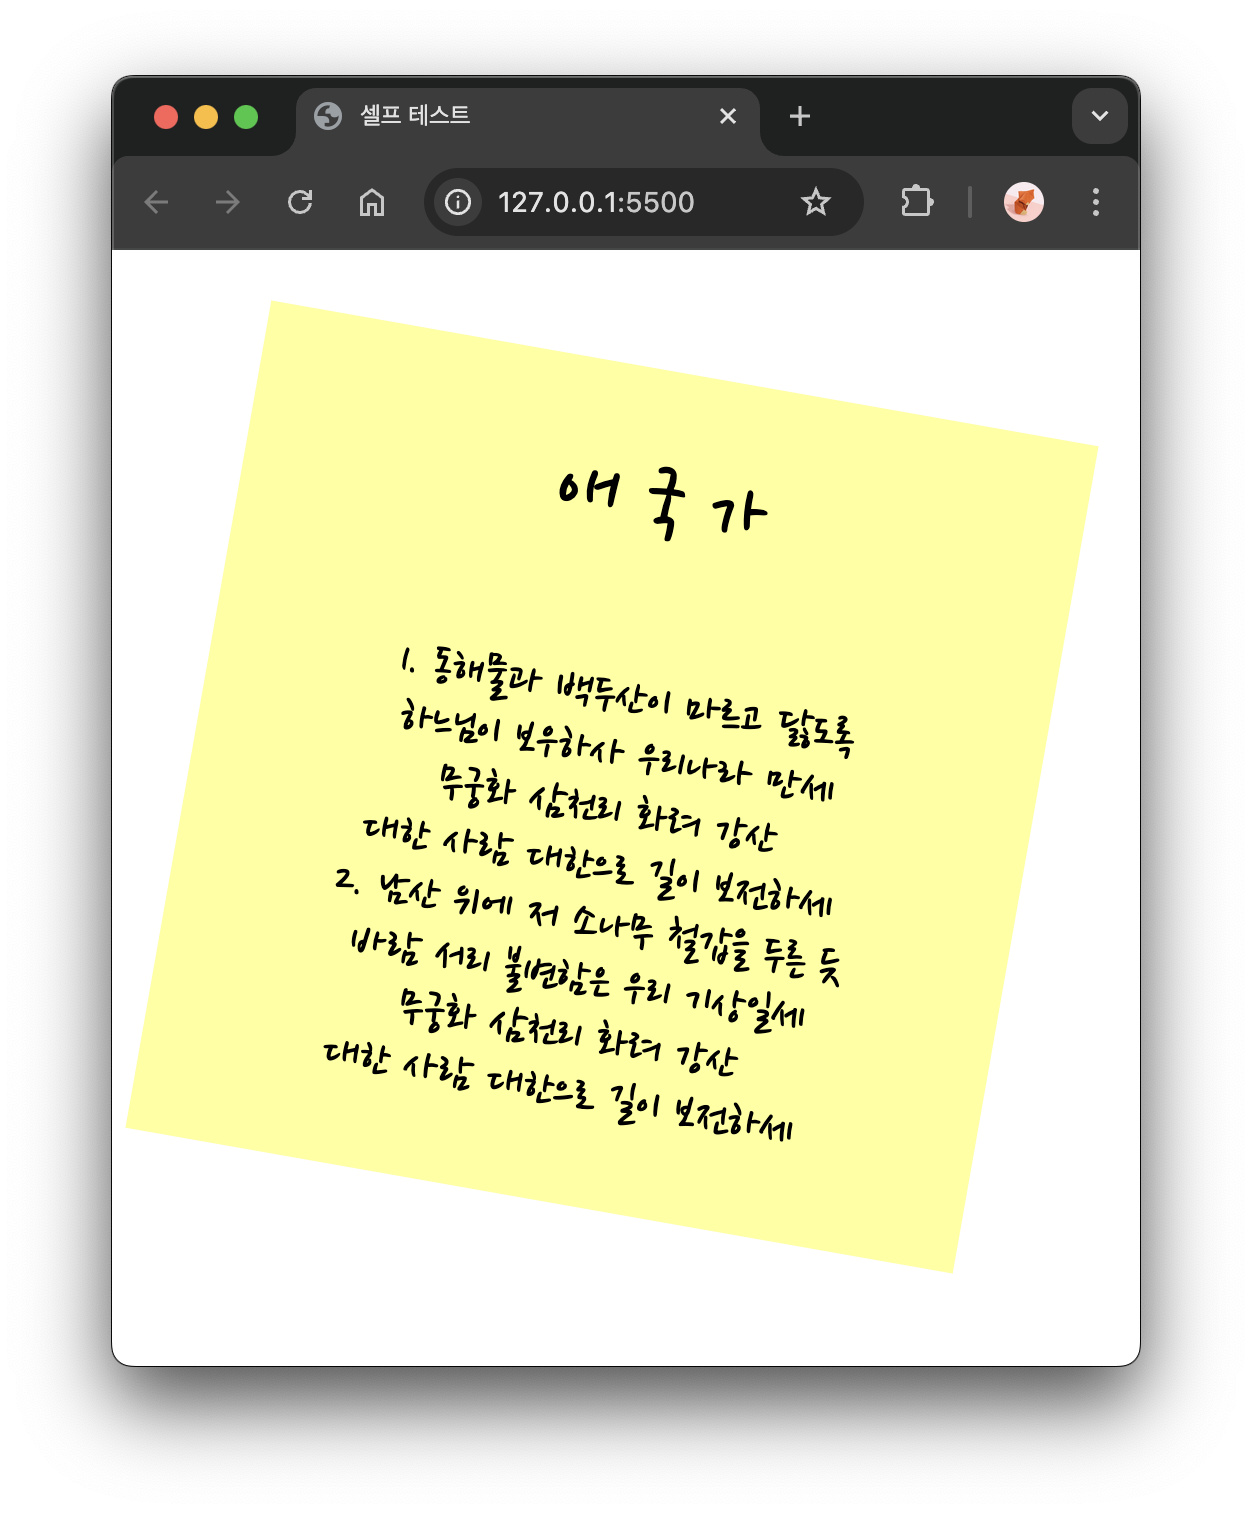 셀프 테스트
127.0.0.1:5500
애 국 가
1. 동해물과 백두산이 마르고 닳도록
하느님이 보우하사 우리나라 만세
무궁화 삼천리 화려 강산
대한 사람 대한으로 길이 보전하세
2. 남산 위에 저 소나무 철갑을 두른 듯
바람 서리 불변함은 우리 기상일세
무궁화 삼천리 화려 강산
대한 사람 대한으로 길이 보전하세